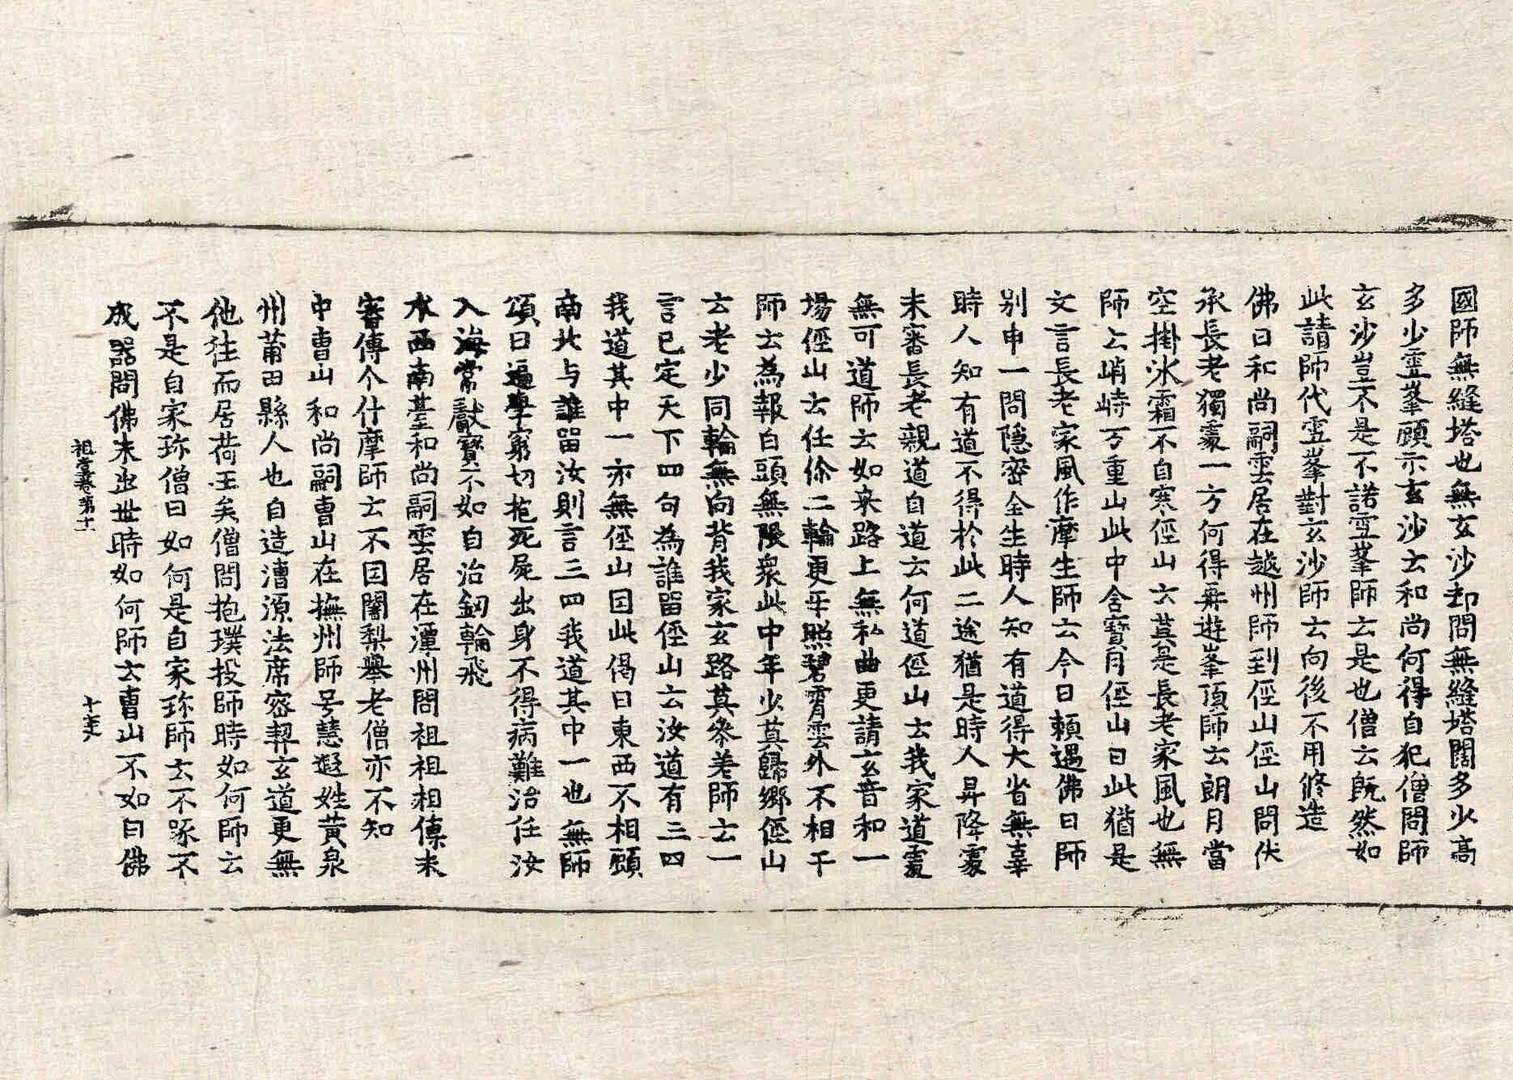 國師無縫塔也無玄沙却問無縫塔闊多少高
多少霊峯顧示玄沙云和尚何得自犯僧問師
玄沙豈不是不諾雪峯師云是也僧云既然如
此請師代雪峯對玄沙師云向後不用修造
佛日和尚嗣雲居在越州師到徑山徑山問伏
承長老獨處一方何得再遊峯頂師云朗月當
空掛氷霜不自寒徑山云莫是長老家風也無
師云峭峙万重山此中含寳月徑山曰此猶是
文言長老家風作摩生師云今日頼遇佛日師
別申一問隱密全生時人知有道得大省無辜
時人知有道不得於此二途猶是時人昇降處
未審長老親道自道云何道徑山云我家道處
無可道師云如来路上無私曲更請玄音和一
場徑山云任你二輪更平照碧霄雲外不相干
師云為報白頭無限衆此中年少莫歸鄉徑山
云老少同輪無向背我家玄路莫参差師云一
言已定天下四句為誰留徑山云汝道有三四
我道其中一亦無徑山因此偈曰東西不相顧
南北与誰留汝則言三四我道其中一也無師
頌曰遍學窮切抱死屍出身不得病難治任汝
入海常獻寶不如自治釼輪飛
水西南臺和尚嗣雲居在潭州問祖祖相傳未
審傳个什摩師云不因闍梨舉老僧亦不知
中曹山和尚嗣曹山在撫州師号慧遐姓黃泉
州莆田縣人也自造漕源法席密契玄道更無
他往而居荷玉矣僧問抱璞投師時如何師云
不是自家珎僧曰如何是自家珎師云不琢不
成器問佛未出世時如何師云曹山不如曰佛
祖堂卷第十二